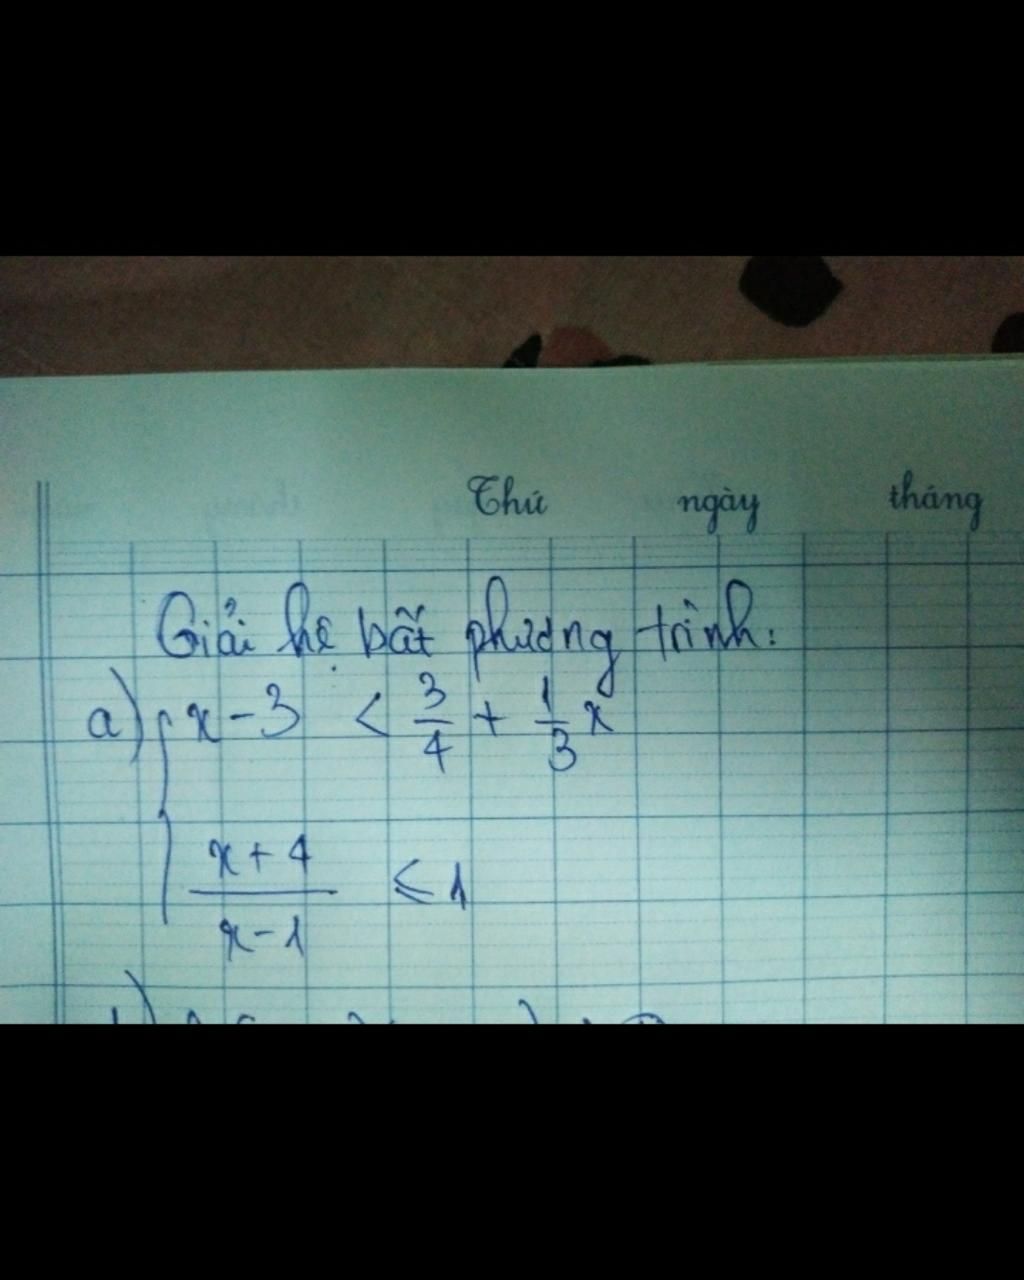 Thứ ngày tháng
Giải hệ bất phương trình:
a) { x - 3 < 3/4 + 1/3 x
x + 4 / x - 1 ≤ 1